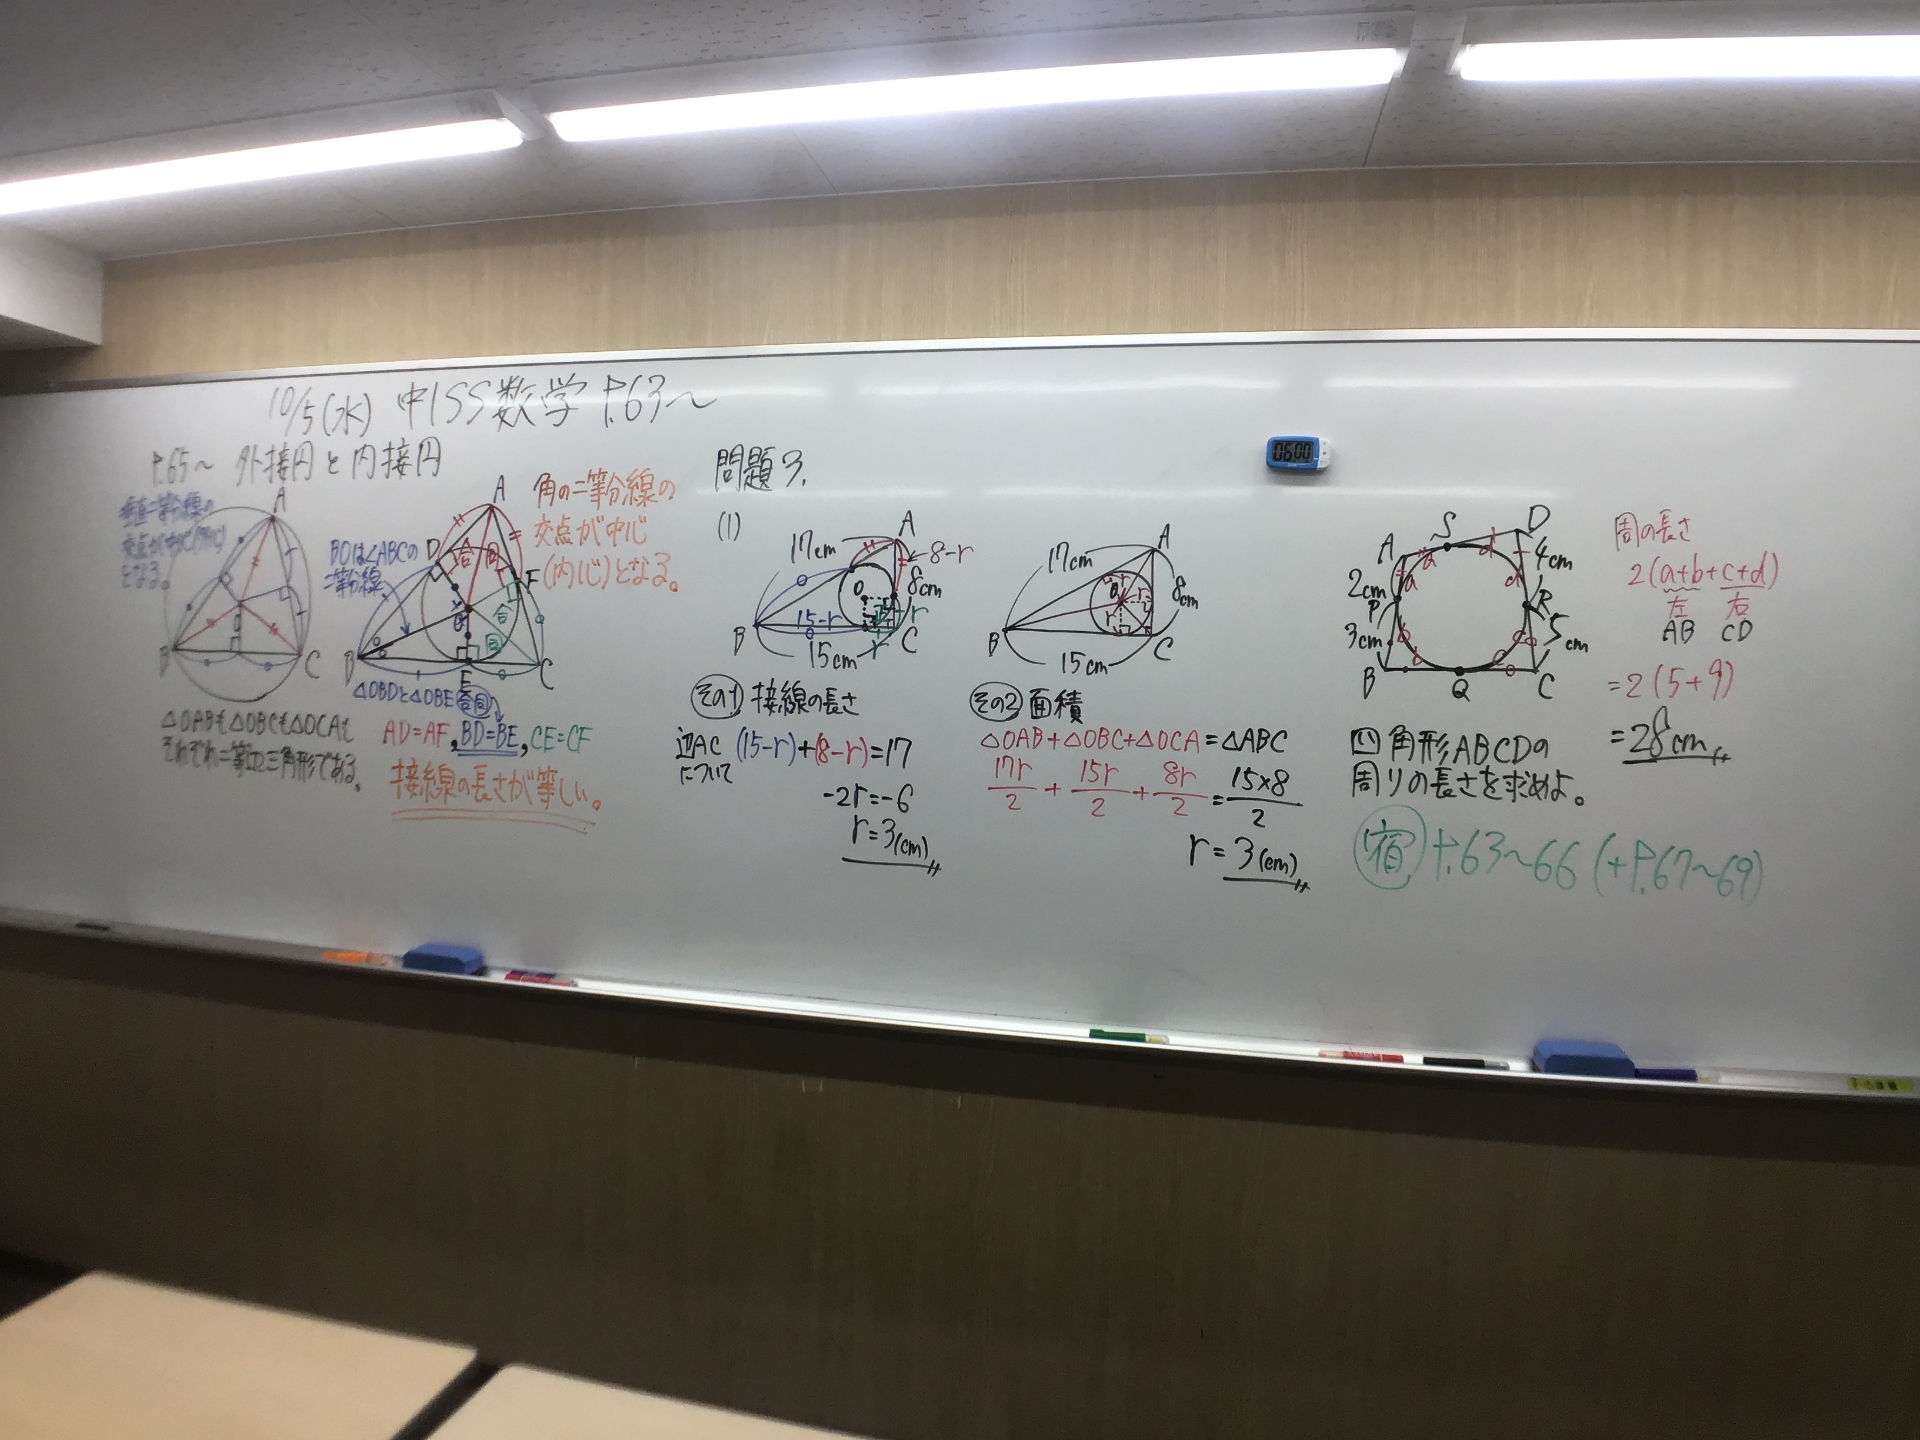 10/5(水) 中1SS数学 P.63～
P.65～ 外接円と内接円
垂直二等分線の
交点が中心(外心)
となる。
A
B
C
O
△OABも△OBCも△OCAも
それぞれ二等辺三角形である。
BOは∠ABCの
二等分線
A
D
合
同
F
合
同
O
B
E
C
△OBDと△OBE合同
AD=AF, BD=BE, CE=CF
接線の長さが等しい。
角の二等分線の
交点が中心
(内心)となる。
問題3.
(1)
17cm
A
8-r
8cm
O
r
15-r
r
B
C
15cm
その1 接線の長さ
辺AC (15-r)+(8-r)=17
について
-2r=-6
r=3(cm)
17cm
A
8cm
O
r
B
C
15cm
その2 面積
△OAB+△OBC+△OCA=△ABC
17r/2 + 15r/2 + 8r/2 = 15×8/2
r=3(cm)
S
D
A
a
d
4cm
2cm
a
d
P
R
3cm
b
c
5cm
b
c
B
Q
C
四角形ABCDの
周りの長さを求めよ。
周の長さ
2(a+b+c+d)
左 右
AB CD
=2(5+9)
=28cm
宿 P.63～66 (+P.67～69)
06:00